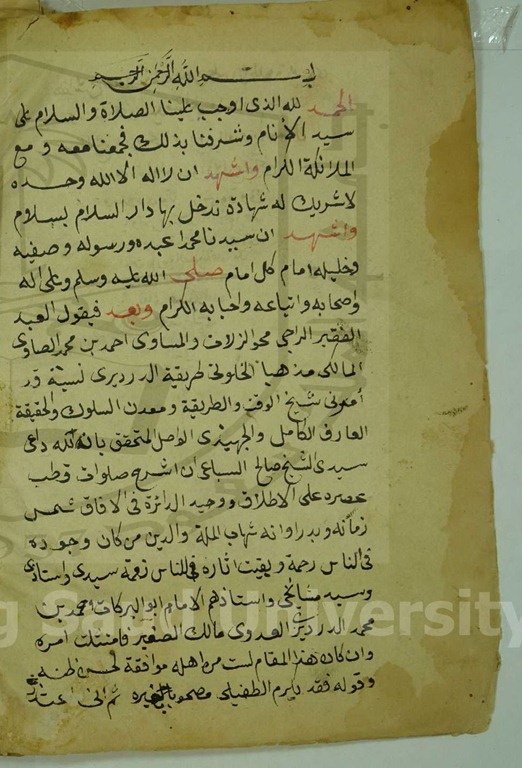 بسم الله الرحمن الرحيم
الحمد لله الذى اوجب علينا الصلاة والسلام على
سيد الأنام وشرفنا بذلك فجمعنا معه ومع
الملائكة الكرام واشهد ان لا اله الا الله وحده
لا شريك له شهادة ندخل بها دار السلام بسلام
واشهد ان سيدنا محمدا عبده ورسوله وصفيه
وخليله امام كل امام صلى الله عليه وسلم وعلى اله
واصحابه واتباعه واحبابه الكرام وبعد فيقول العبد
الفقير الراجى محو الزلات والمساوى احمد بن محمد الصاوى
المالكى مذهبا الخلوتى طريقة الدرديرى نسبة قد
أمرنى شيخ الوقت والطريقة ومعدن السلوك والحقيقة
العارف الكامل والجهبذى الاصل المتحقق بانه لله داعى
سيدى الشيخ صالح السباعى ان اشرح صلوات قطب
عصره على الاطلاق ووحيد الدائرة فى الآفاق شمس
زمانه وبدر اوانه شهاب الملة والدين من كان وجوده
فى الناس رحمة وبقيت اثاره فى الناس نعمة سيدى واستاذى
وسيد مشائخى واستاذهم الامام ابو البركات احمد بن
محمد الدردير العدوى مالك الصغير فامتثلت امره
وان كان هذا المقام لست من اهله موافقة لحسن ظنه
وقوله فقد يكرم الطفيلى مصحوبا بغيره ثم انى اعتمد